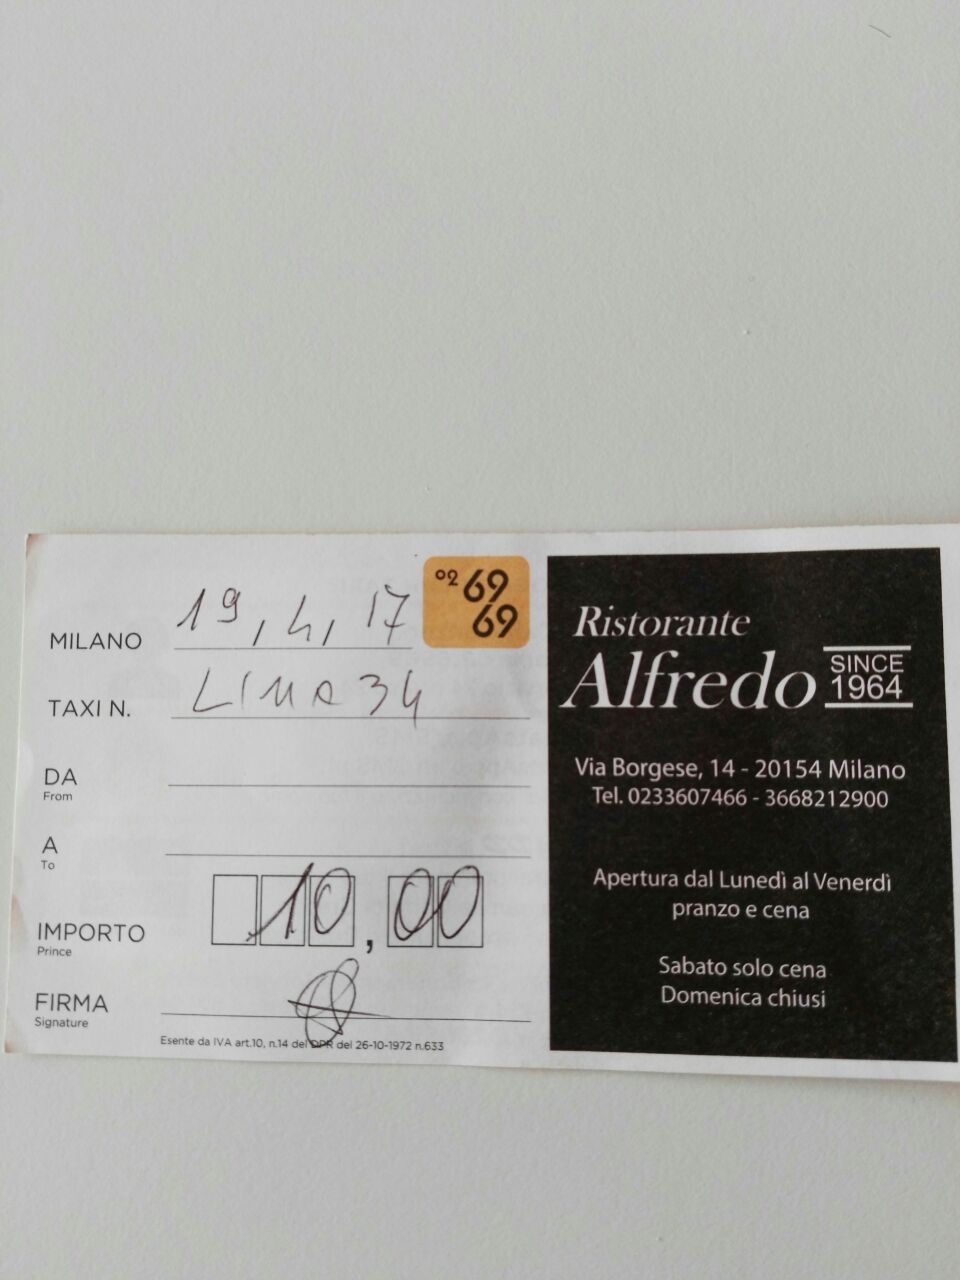 MILANO 19, 4, 17
02 69
69
TAXI N. LIMA 34
DA
From
A
To
IMPORTO 10,00
Prince
FIRMA
Signature
Esente da IVA art.10, n.14 del DPR del 26-10-1972 n.633
Ristorante
Alfredo SINCE 1964
Via Borgese, 14 - 20154 Milano
Tel. 0233607466 - 3668212900
Apertura dal Lunedì al Venerdì
pranzo e cena
Sabato solo cena
Domenica chiusi